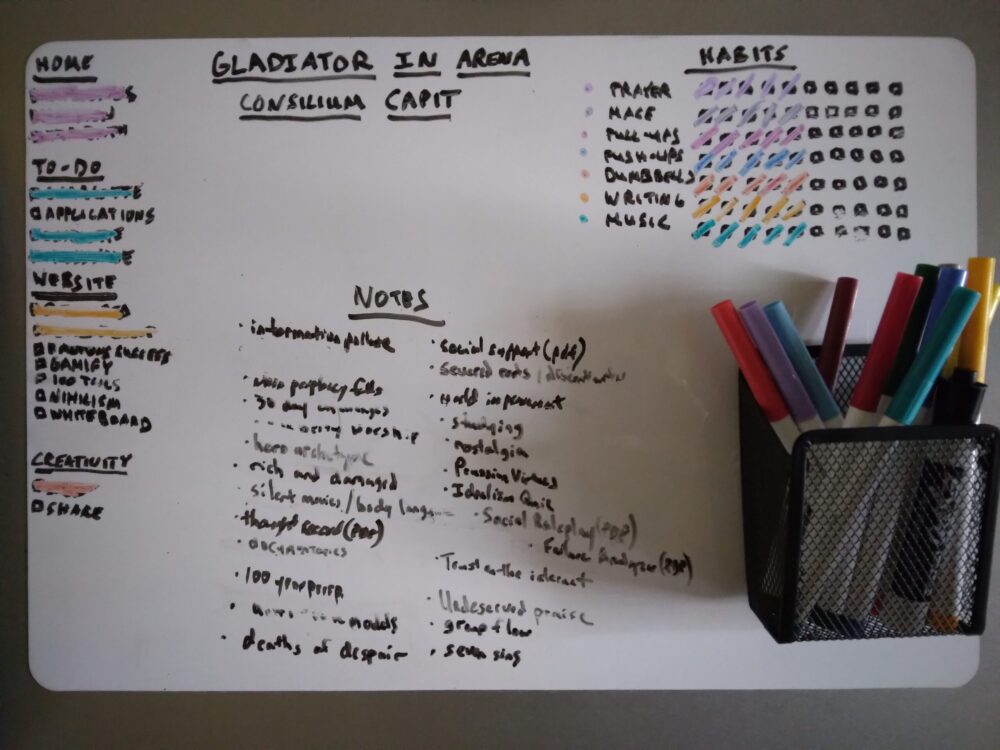 HOME
TO-DO
APPLICATIONS
WEBSITE
GAMIFY
NIHILISM
WHITEBOARD
CREATIVITY
SHARE
GLADIATOR IN ARENA
CONSILIUM CAPIT
HABITS
PRAYER
MACE
PULL-UPS
PUSH-UPS
DUMBBELLS
WRITING
MUSIC
NOTES
information
30 day
WORSHIP
hero archetype
rich and damaged
silent movies / body
thought record (PDF)
DOCUMENTARIES
100 year
models
deaths of despair
social support (pdf)
Severed
world improvement
studying
nostalgia
Virtues
Idealism Quiz
Social Roleplay (PDF)
Failure Analyzer (PDF)
Trust on the internet
Undeserved praise
group flow
seven sins